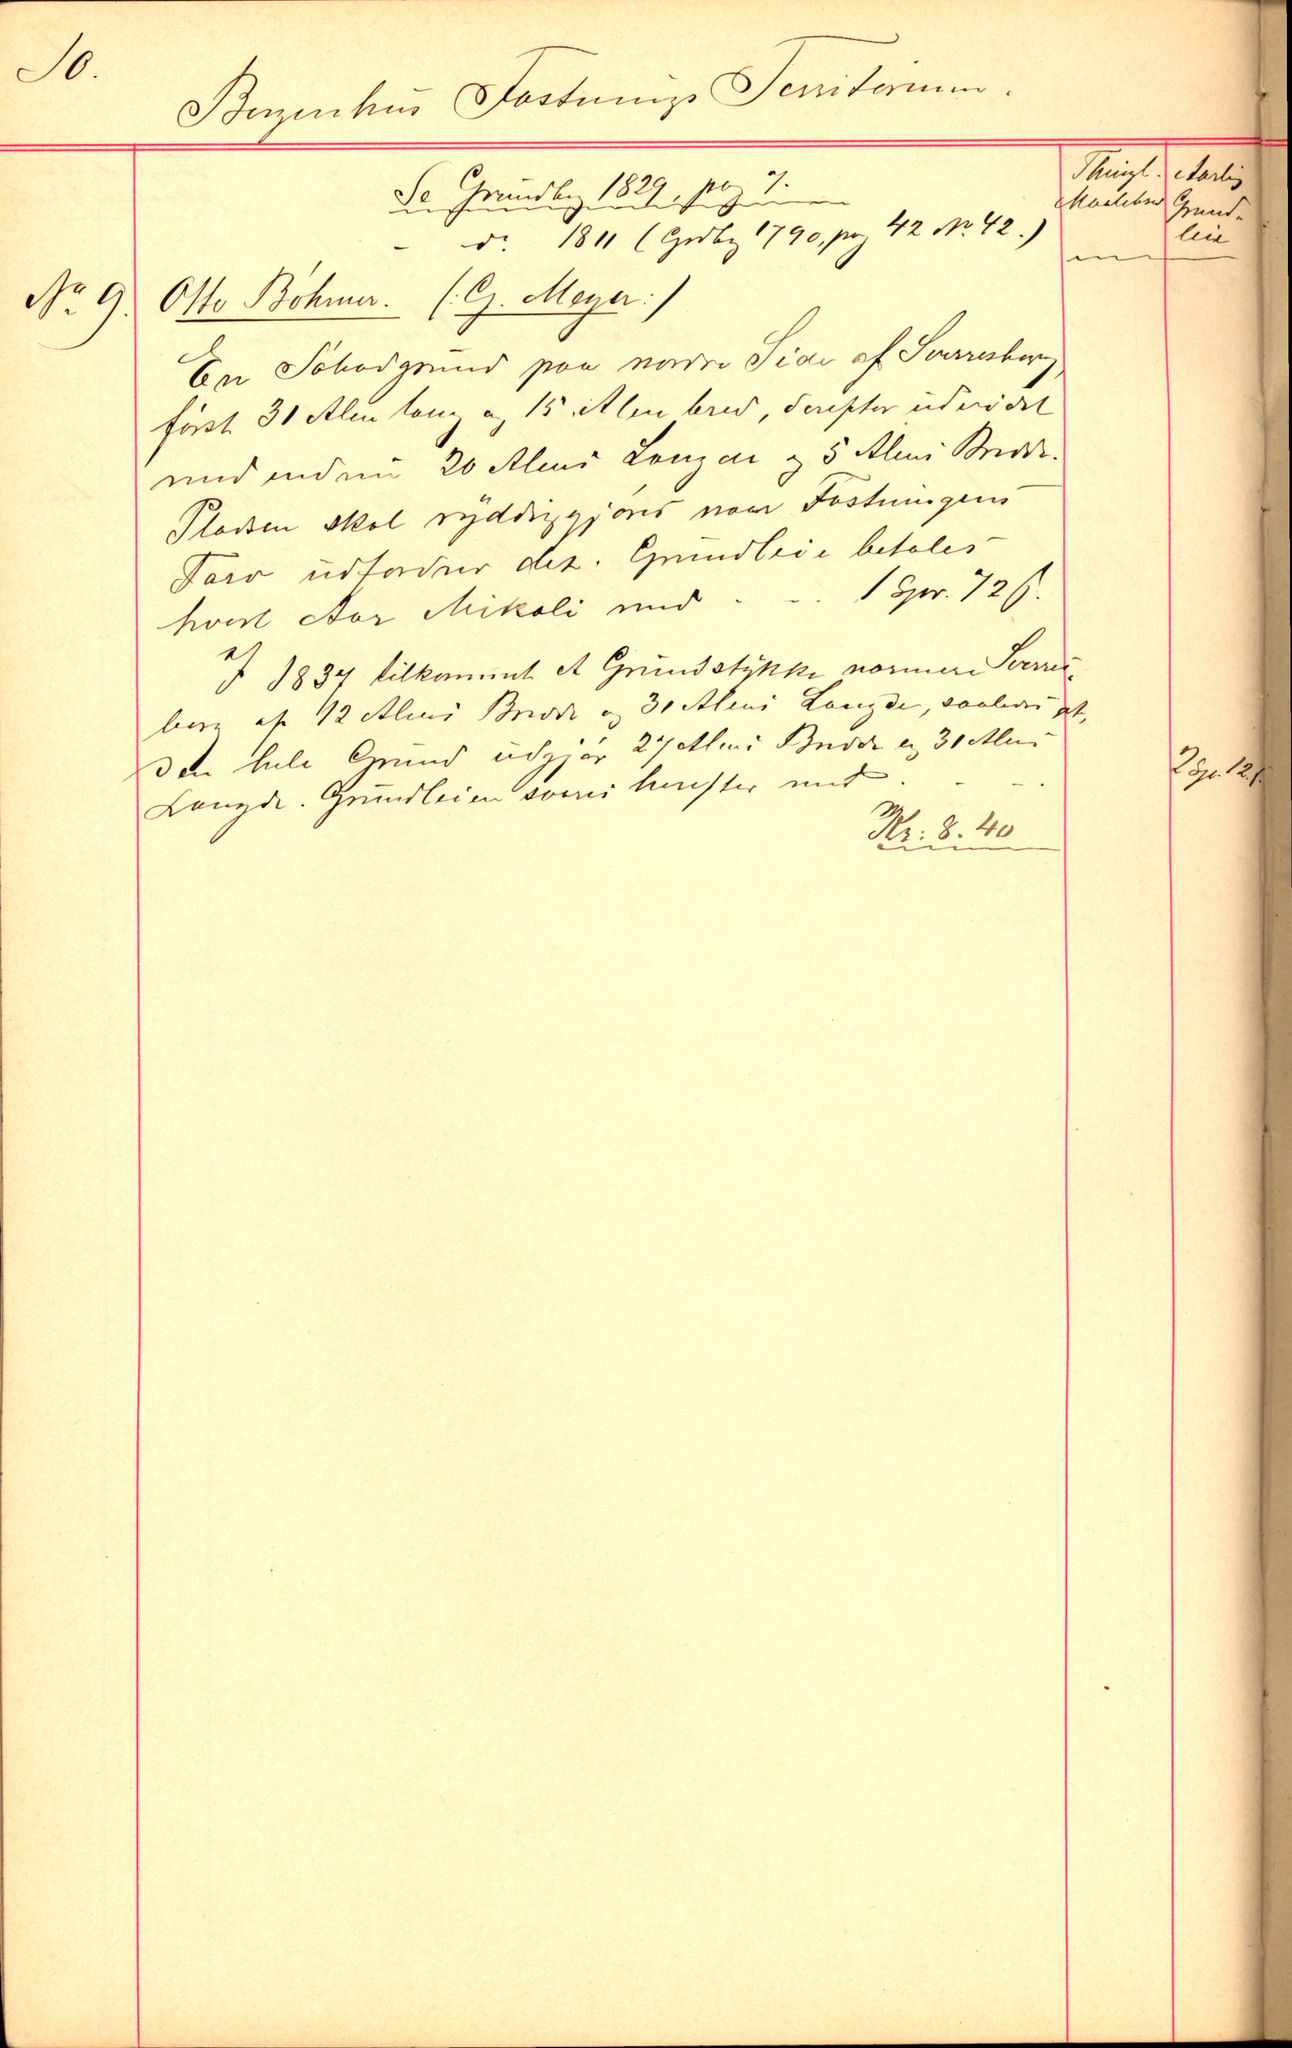 10.
Bergenhus Fæstnings Territorium.
Se Grundbog 1829, pag 7.
- do. 1811 (Grdbg 1790, pag 42 No. 42.)
Thingl. Aarlig
Maalebrev Grund-
leie
No. 9. Otto Böhmer. (: G. Meyer :)
En Söbodgrund paa nordre Side af Sverresborg,
först 31 Alen lang og 15 Alen bred, derefter udvidet
med endnu 20 Alens Længde og 5 Alens Bredde.
Pladsen skal ryddiggjöres naar Fæstningens
Tarv udfordrer det. Grundleie betales
hvert Aar Mikali med - - . 1 Spr. 72 ß.
I 1837 tilkommet et Grundstykke nærmere Sverres-
berg af 12 Alens Bredde og 31 Alens Længde, saaledes at
den hele Grund udgjör 27 Alens Bredde og 31 Alens
Længde. Grundleien svares herefter med . - - . 2 Sp. 12 ß.
Kr: 8. 40